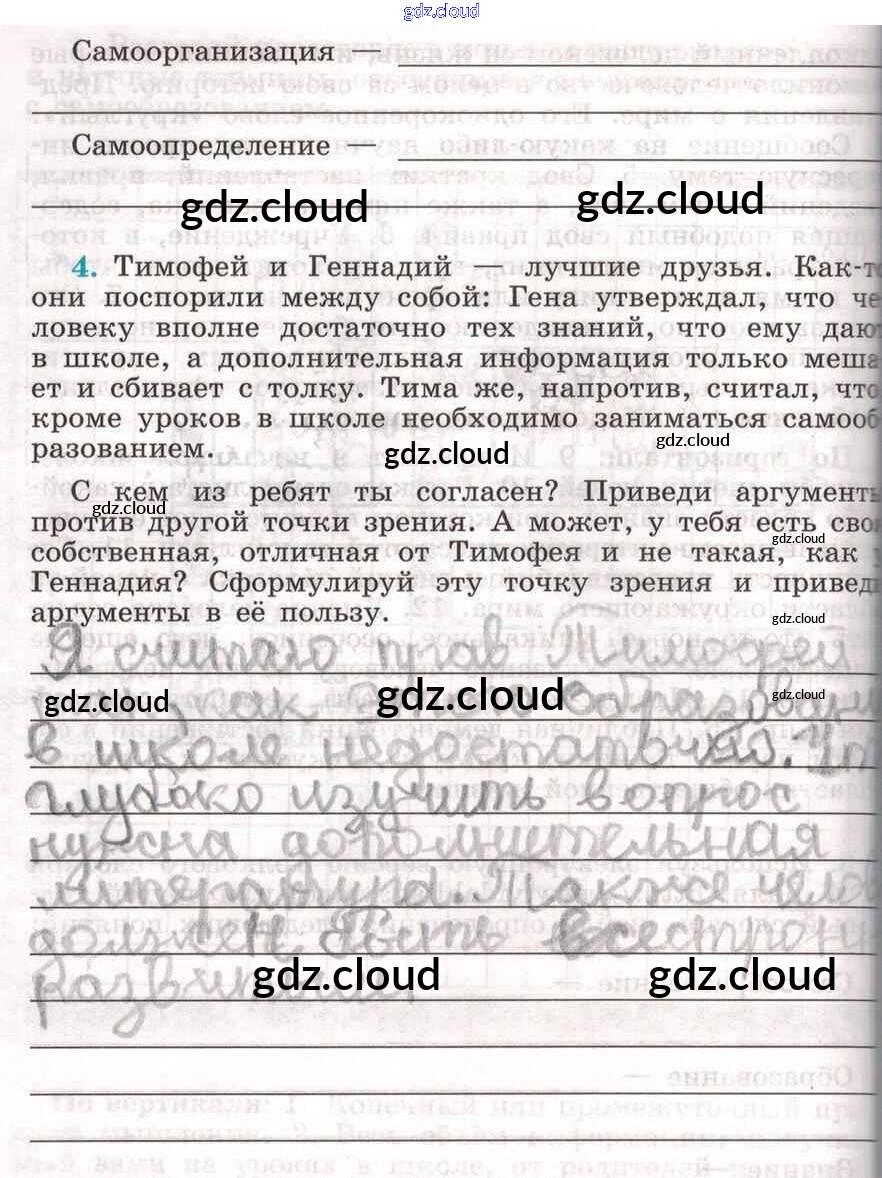 gdz.cloud
Самоорганизация —
Самоопределение —
gdz.cloud gdz.cloud
4. Тимофей и Геннадий — лучшие друзья. Как-то
они поспорили между собой: Гена утверждал, что че
ловеку вполне достаточно тех знаний, что ему дают
в школе, а дополнительная информация только меша
ет и сбивает с толку. Тима же, напротив, считал, что
кроме уроков в школе необходимо заниматься самооб
разованием.
gdz.cloud gdz.cloud
С кем из ребят ты согласен? Приведи аргументы
gdz.cloud
против другой точки зрения. А может, у тебя есть сво
gdz.cloud
собственная, отличная от Тимофея и не такая, как у
Геннадия? Сформулируй эту точку зрения и приведи
аргументы в её пользу.
gdz.cloud
Я считаю прав Тимофей
gdz.cloud gdz.cloud gdz.cloud
так как этого образовани
в школе недостаточно.
глубоко изучить вопрос
нужна дополнительная
литература. Также чело
должен быть всесторон
gdz.cloud gdz.cloud
развитым.
Образование —
По вертикали: 1. Конечный или промежуточный пр